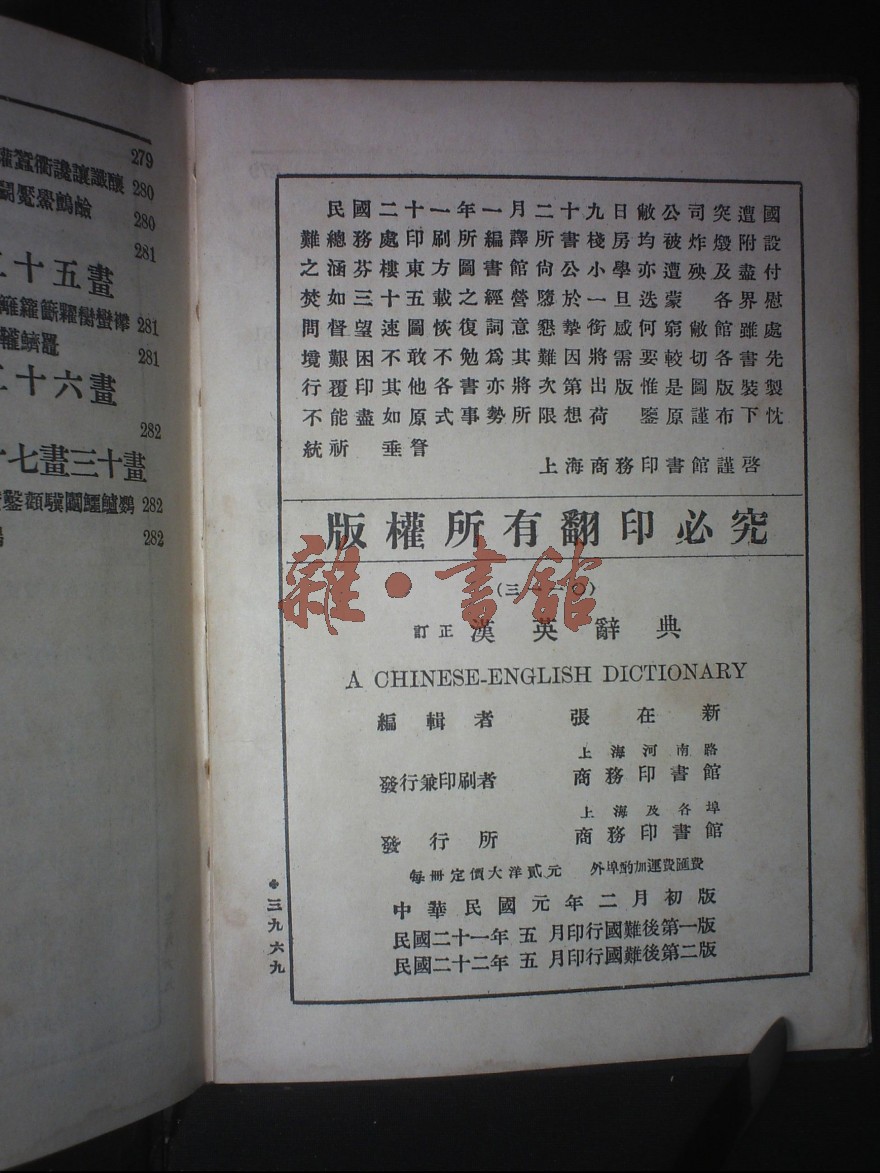 279
280
280
281
十五畫
281
281
十六畫
282
十七畫三十畫
282
282
民國二十一年一月二十九日敝公司突遭國
難總務處印刷所編譯所書棧房均被炸燬附設
之涵芬樓東方圖書館尚公小學亦遭殃及盡付
焚如三十五載之經營隳於一旦迭蒙各界慰
問督望速圖恢復詞意懇摯銜感何窮敝館雖處
境艱困不敢不勉為其難因將需要較切各書先
行覆印其他各書亦將次第出版惟是圖版裝製
不能盡如原式事勢所限想荷 鑒原謹布下忱
統祈 垂詧
上海商務印書館謹啓
版權所有翻印必究
雜·書館
(三一一〇)
訂正 漢英辭典
A CHINESE-ENGLISH DICTIONARY
編輯者 張在新
上海河南路
發行兼印刷者 商務印書館
上海及各埠
發行所 商務印書館
每冊定價大洋貳元 外埠酌加運費匯費
中華民國元年二月初版
民國二十一年五月印行國難後第一版
民國二十二年五月印行國難後第二版
三九六九